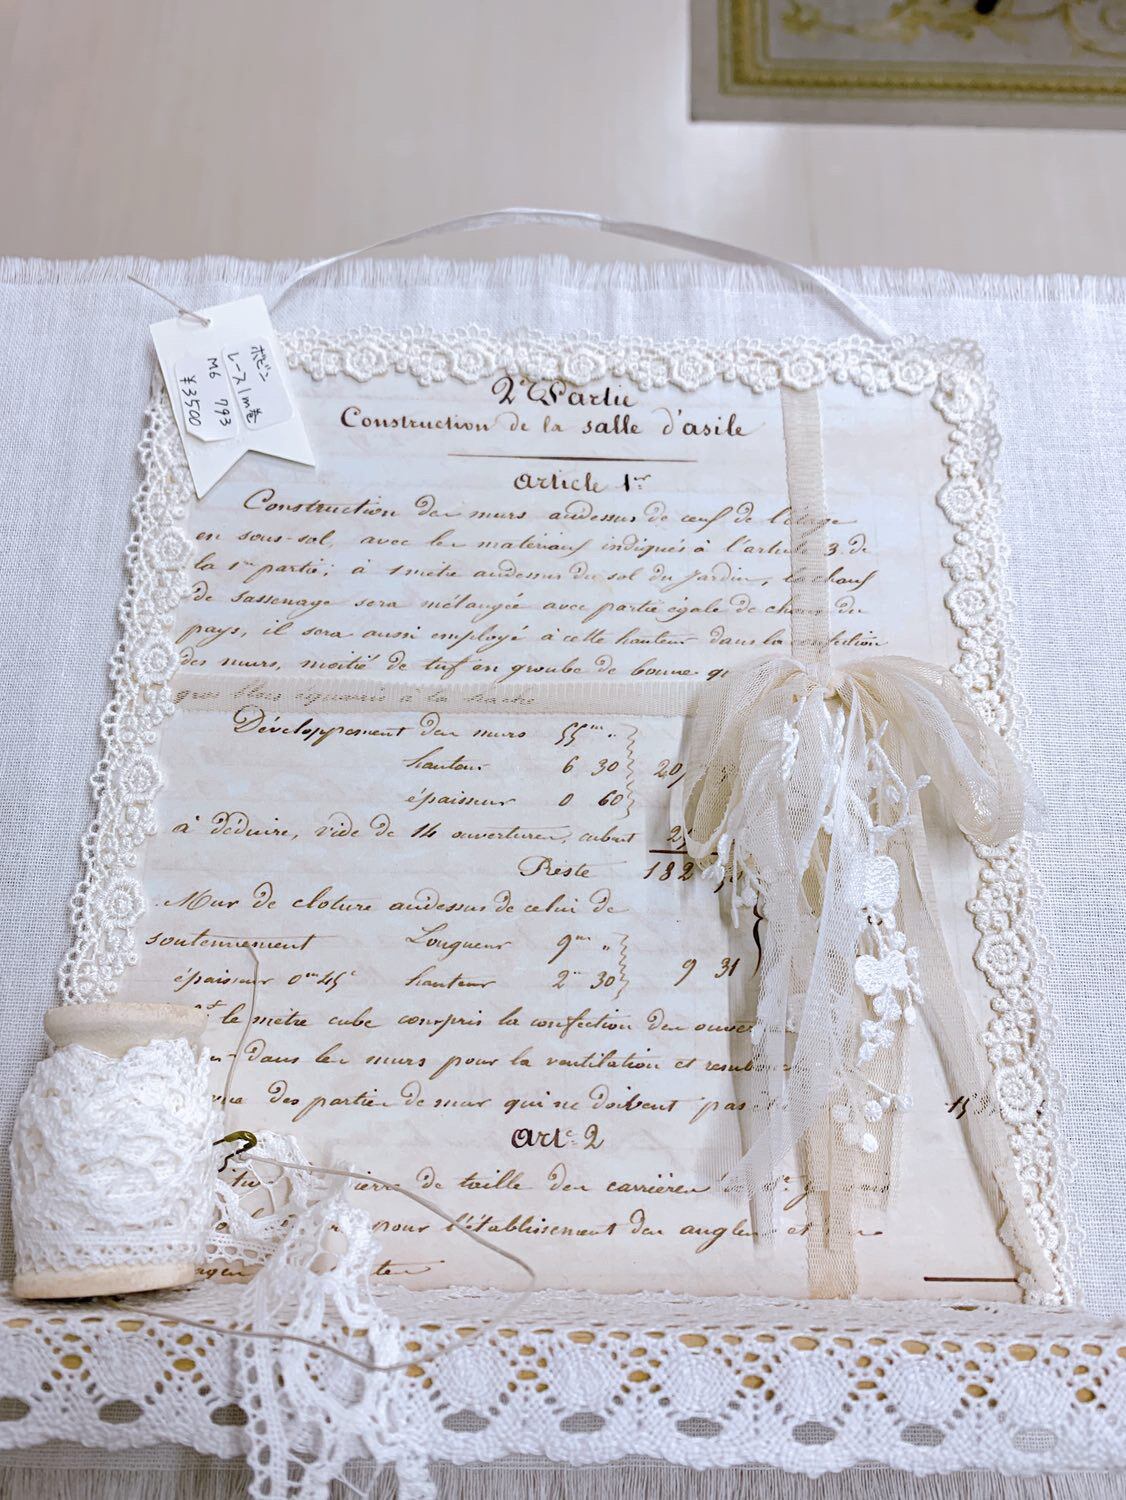 ボビン
レース1m巻
M6 793
¥3500
2e Partie
Construction de la salle d'asile
Article 1er
Construction des murs audessus de ceux de l'étage
en sous-sol, avec les matériaux indiqués à l'article 3 de
la 1re partie; à 1 mètre audessus du sol du jardin, la chaux
de sassenage sera mélangée avec partie égale de chaux du
pays, il sera aussi employé à cette hauteur dans la confection
des murs, moitié de tuf en groube de bonne
gros blocs équarris à la
Développement des murs 55m "
hauteur 6 30
épaisseur 0 60
à déduire, vide de 14 ouvertures, cubant
Reste 182
Mur de cloture audessus de celui de
soutennement Longueur 9m "
épaisseur 0m 45c hauteur 2m 30 9 31
le mètre cube compris la confection des
dans les murs pour la ventilation et
des parties de mur qui ne doivent pas
Art.e 2
de taille des carrières de St
pour l'établissement des angles et